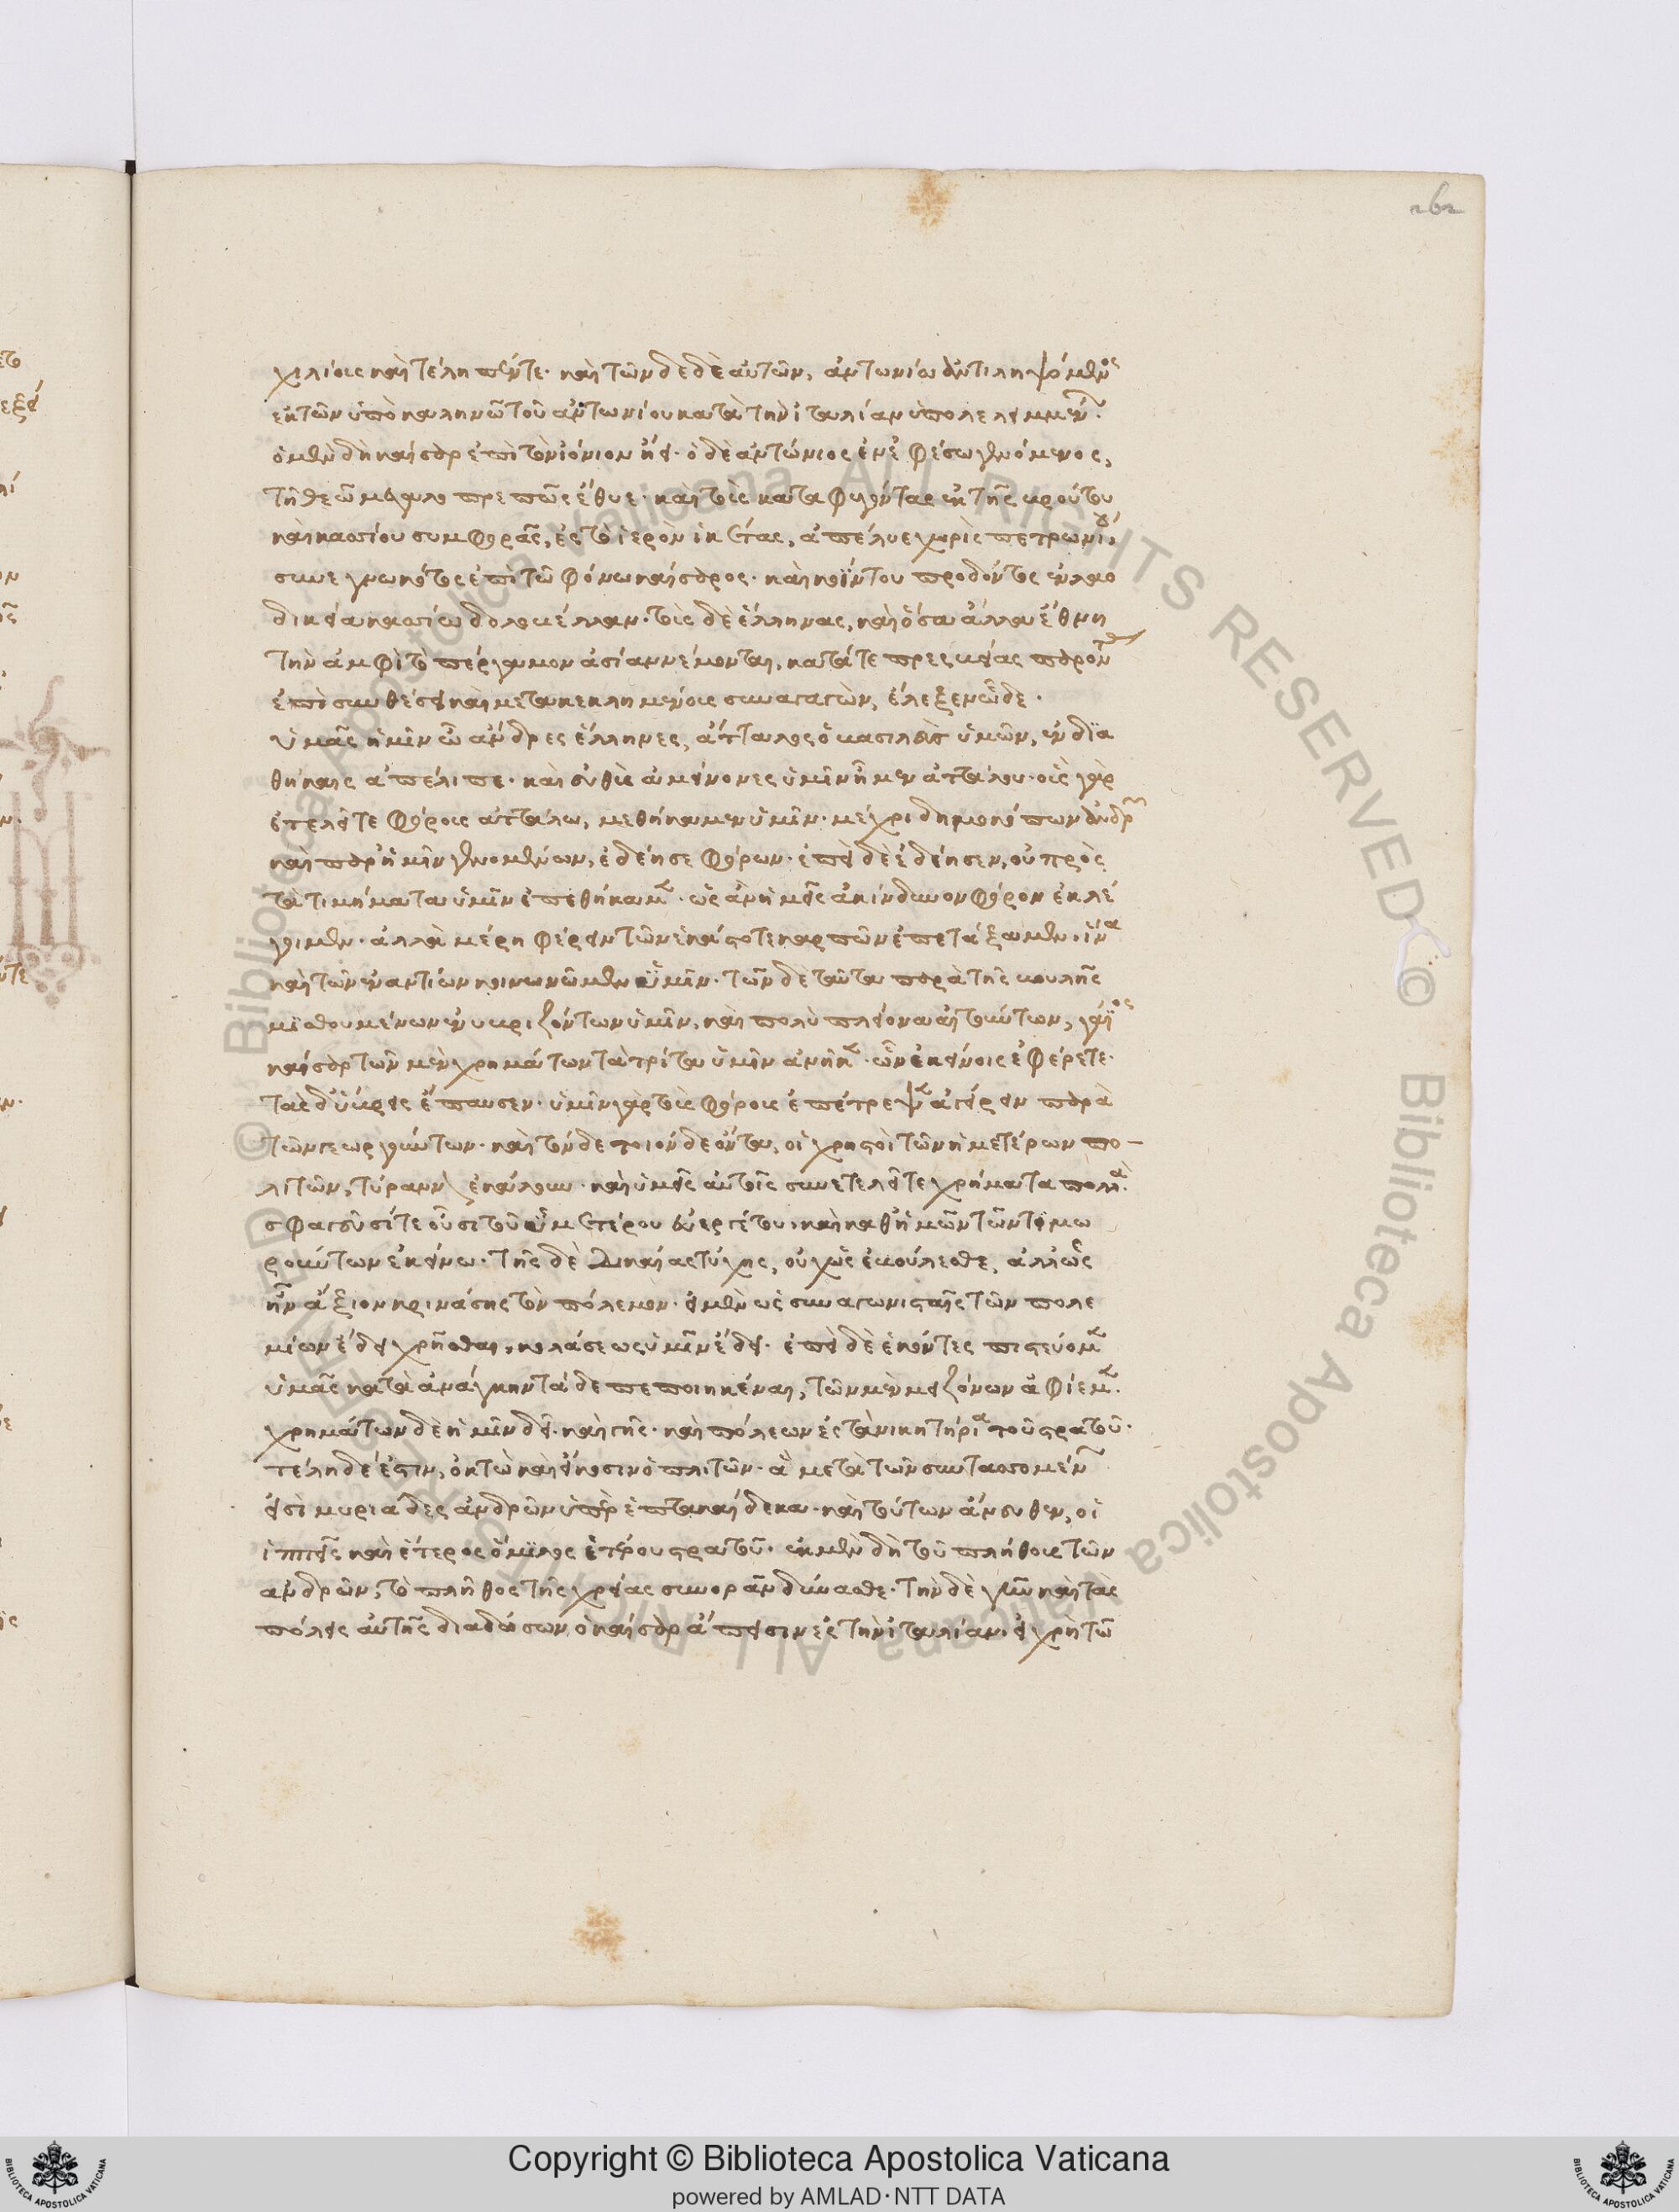 262
χιλίοις καὶ τέλη πέντε· καὶ τῶνδε δὲ αὐτῶν, ἀντωνίω ἀντιληψόμενος
ἐκ τῶν ὑπὸ καληνῶ τοῦ ἀντωνίου κατὰ τὴν ἰταλίαν ὑπολελειμμένων.
ὁ μὲν δὴ καῖσαρ ἐπὶ τὸν ἰόνιον ᾔει· ὁ δὲ ἀντώνιος ἐν ἐφέσω γενόμενος,
τῆ θεῶ μεγαλοπρεπῶς ἔθυε· καὶ τοὺς καταφυγόντας ἐκ τῆς βρούτου
καὶ κασσίου συμφορᾶς, ἐς τὸ ἱερὸν ἱκέτας, ἀπέλυε χωρὶς πετρωνίου,
συνεγνωκότος ἐπὶ τῶ φόνω καίσαρος· καὶ κοΐντου προδόντος ἐν λαο
δικεία κασσίω δολοβέλλαν· τοὺς δὲ ἕλληνας, καὶ ὅσα ἄλλα ἔθνη
τὴν ἀμφὶ τὸ πέργαμον ἀσίαν νέμονται, κατά τε πρεσβείας παρόντων
ἐπὶ συνθέσει καὶ μετακεκλημένοις συναγαγὼν, ἔλεξεν ὧδε·
ὑμᾶς ἡμῖν ὦ ἄνδρες ἕλληνες, ἄτταλος ὁ βασιλεὺς ὑμῶν, ἐν δια
θήκαις ἀπέλιπε· καὶ εὐθὺς ἀμείνονες ὑμῖν ἦμεν ἀττάλου· οὓς γὰρ
ἐτελεῖτε φόρους ἀττάλω, μεθήκαμεν ὑμῖν· μέχρι δημοκόπων ἀνδρῶν
καὶ παρ' ἡμῖν γενομένων, ἐδέησε φόρων· ἐπεὶ δὲ ἐδέησεν, οὐ πρὸς
τὰ τιμήματα ὑμῖν ἐπεθήκαμεν· ὡς ἂν ἡμεῖς ἀκίνδυνον φόρον ἐκλέ
γοιμεν· ἀλλὰ μέρη φέρειν τῶν ἑκάστοτε καρπῶν ἐπετάξαμεν· ἵνα
καὶ τῶν ἐναντίων κοινωνῶμεν ὑμῖν· τῶν δὲ ταῦτα παρὰ τῆς βουλῆς
μισθουμένων ἐνυβριζόντων ὑμῖν, καὶ πολὺ πλείονα αἰτούντων, γάϊος
καίσαρ τῶν μὲν χρημάτων τὰ τρίτα ὑμῖν ἀνῆκεν· ὧν ἐκείνοις ἐφέρετε·
τὰς δ' ὕβρεις ἔπαυσεν· ὑμῖν γὰρ τοὺς φόρους ἐπέτρεψεν ἀγείρειν παρὰ
τῶν γεωργούντων· καὶ τόνδε τοιόνδε ὄντα, οἱ χρηστοὶ τῶν ἡμετέρων πο–
λιτῶν, τύραννον ἐκάλουν· καὶ ὑμεῖς αὐτοῖς συνετελεῖτε χρήματα πολλὰ.
σφαγεῦσί τε οὖσι τοῦ ὑμετέρου εὐεργέτου, καὶ καθ' ἡμῶν τῶν τιμω
ρούντων ἐκείνω· τῆς δὲ δικαίας τύχης, οὐχ ὡς ἐβούλεσθε, ἀλλ' ὡς
ἦν ἄξιον κρινάσης τὸν πόλεμον· εἰ μὲν ὡς συναγωνισταῖς τῶν πολε
μίων ἔδει χρῆσθαι, κολάσεως ὑμῖν ἔδει· ἐπεὶ δὲ ἑκόντες πιστεύομεν
ὑμᾶς κατὰ ἀνάγκην τάδε πεποιηκέναι, τῶν μὲν μειζόνων ἀφίεμεν.
χρημάτων δὲ ἡμῖν δεῖ· καὶ γῆς· καὶ πόλεων ἐς τὰ νικητήρια τοῦ στρατοῦ·
τέλη δέ ἐστιν, ὀκτὼ καὶ εἴκοσιν ὁπλιτῶν· ἃ μετὰ τῶν συντασσομένων
εἰσὶ μυριάδες ἀνδρῶν ὑπὲρ ἑπτακαίδεκα· καὶ τούτων ἄνευθεν, οἱ
ἱππεῖς καὶ ἕτερος ὅμιλος ἑτέρου στρατοῦ· ἐκ μὲν δὴ τοῦ πλήθους τῶν
ἀνδρῶν, τὸ πλῆθος τῆς χρείας συνορᾶν δύνασθε· τὴν δὲ γῆν καὶ τὰς
πόλεις αὐτῆς διαδώσων ὁ καίσαρ ἄπεισιν ἐς τὴν ἰταλίαν· εἰ χρὴ τῶ
Copyright © Biblioteca Apostolica Vaticana
powered by AMLAD·NTT DATA